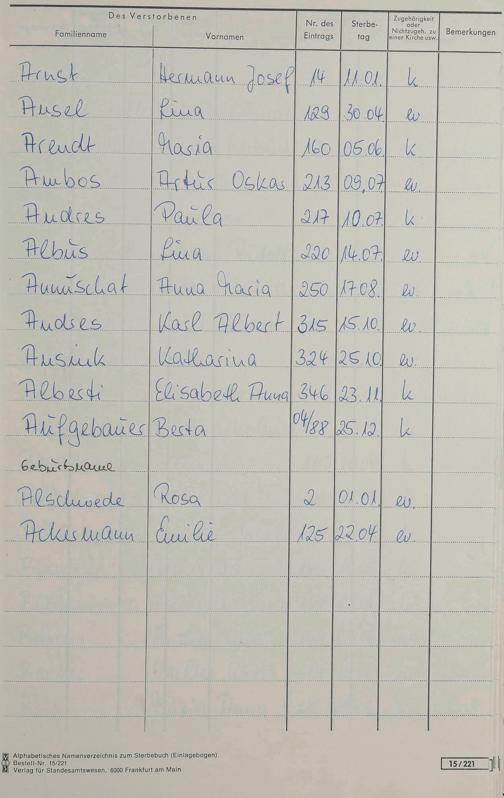 Des Verstorbenen
Familienname Vornamen Nr. des Eintrags Sterbe-tag Zugehörigkeit oder Nichtzugeh. zu einer Kirche usw. Bemerkungen
Arnst Hermann Josef 14 11.01. k
Ansel Lina 129 30.04. ev
Arendt Maria 160 05.06. k
Ambos Artur Oskar 213 09.07 ev.
Andres Paula 217 10.07. k
Albus Lina 220 14.07. ev.
Annuschat Anna Maria 250 17.08. ev.
Andres Karl Albert 315 15.10. ev.
Ansink Katharina 324 25.10. ev.
Alberti Elisabeth Anna 346 23.11. k
Aufgebauer Berta 04/88 25.12. k
Geburtsname
Alschwede Rosa 2 01.01. ev.
Ackermann Emilie 125 22.04. ev.
Alphabetisches Namenverzeichnis zum Sterbebuch (Einlagebogen).
Bestell-Nr. 15/221
Verlag für Standesamtswesen, 6000 Frankfurt am Main
15/221